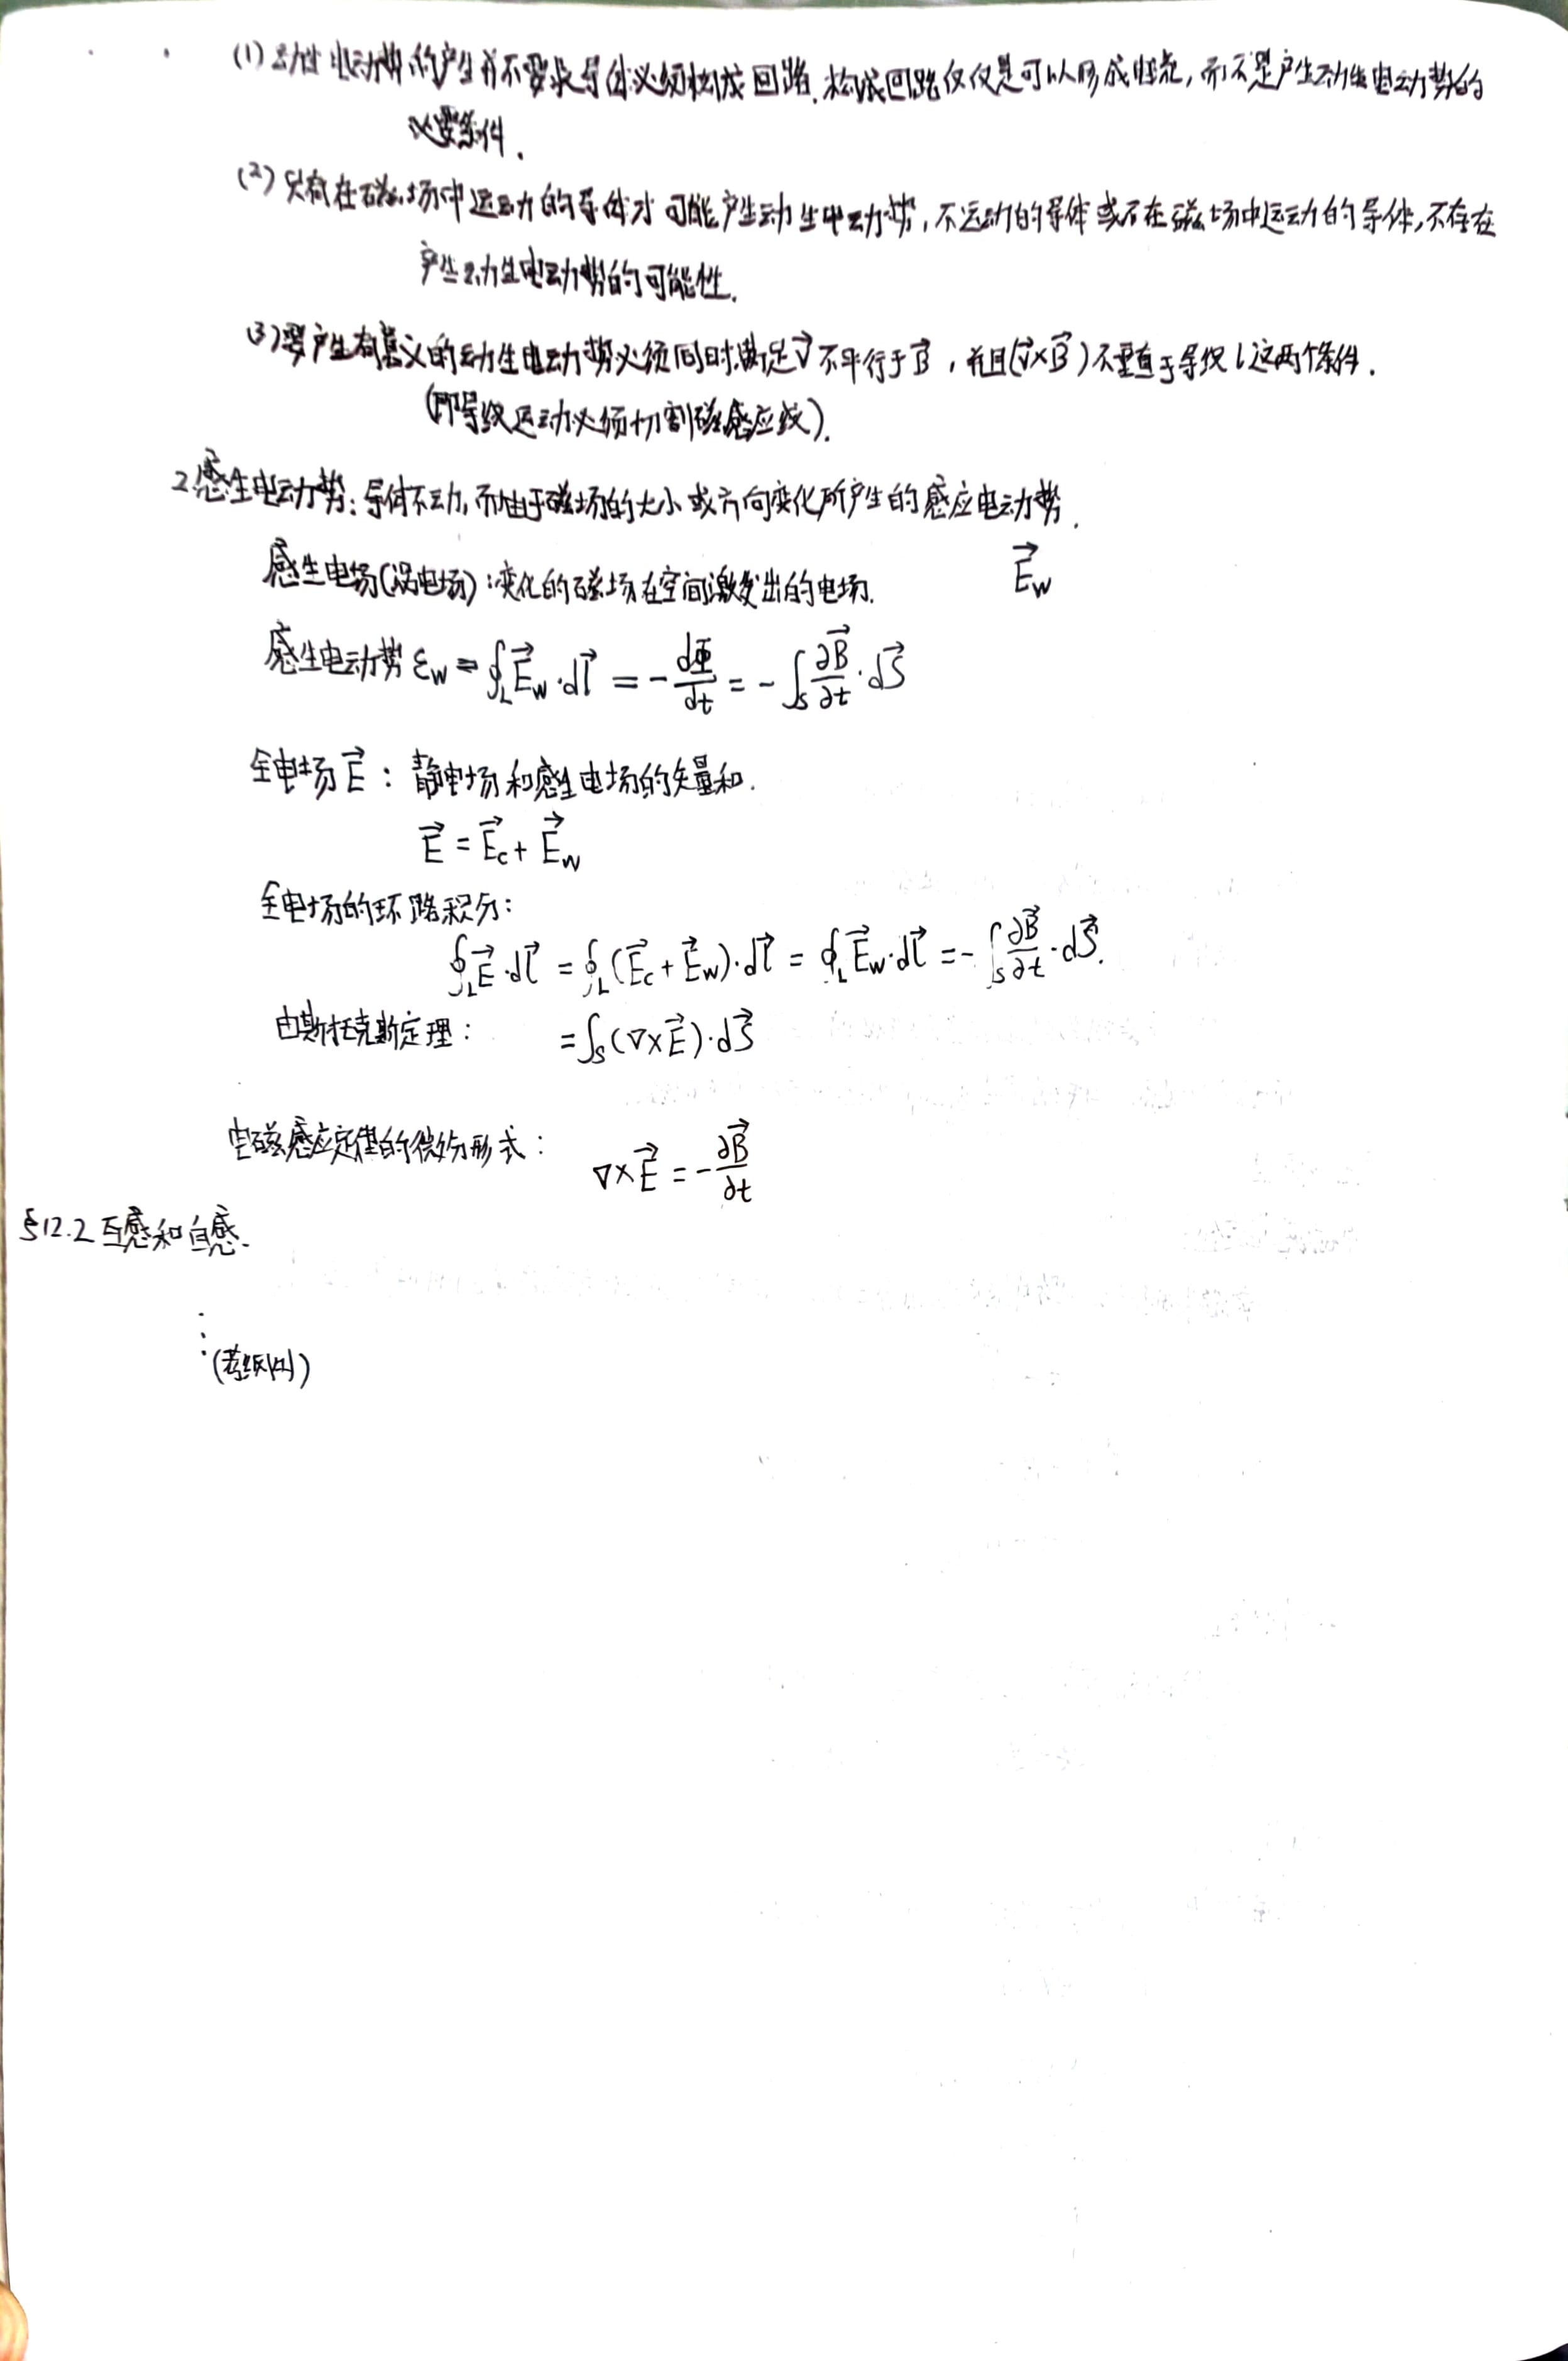 (1) 动生电动势的产生并不要求导体必须构成回路,构成回路仅仅是可以形成电流,而不是产生动生电动势的
必要条件.
(2) 只有在磁场中运动的导体才可能产生动生电动势,不运动的导体或不在磁场中运动的导体,不存在
产生动生电动势的可能性.
(3) 要产生有意义的动生电动势必须同时满足 $\vec{v}$ 不平行于 $\vec{B}$ ,并且($\vec{v}×\vec{B}$)不垂直于导线 l 这两个条件.
(即导线运动必须切割磁感应线).
2.感生电动势:导体不动,而由于磁场的大小或方向变化所产生的感应电动势.
感生电场(涡电场):变化的磁场在空间激发出的电场. $\vec{E}_w$
感生电动势 $\varepsilon_w = \oint_L \vec{E}_w \cdot d\vec{l} = -\frac{d\Phi}{dt} = -\int_S \frac{\partial \vec{B}}{\partial t} \cdot d\vec{S}$
全电场 $\vec{E}$ : 静电场和感生电场的矢量和.
$\vec{E} = \vec{E}_c + \vec{E}_w$
全电场的环路积分:
$\oint_L \vec{E} \cdot d\vec{l} = \oint_L (\vec{E}_c + \vec{E}_w) \cdot d\vec{l} = \oint_L \vec{E}_w \cdot d\vec{l} = -\int_S \frac{\partial \vec{B}}{\partial t} \cdot d\vec{S}.$
由斯托克斯定理: $= \int_S (\nabla × \vec{E}) \cdot d\vec{S}$
电磁感应定律的微分形式: $\nabla × \vec{E} = -\frac{\partial \vec{B}}{\partial t}$
§12.2 互感和自感.
⋮